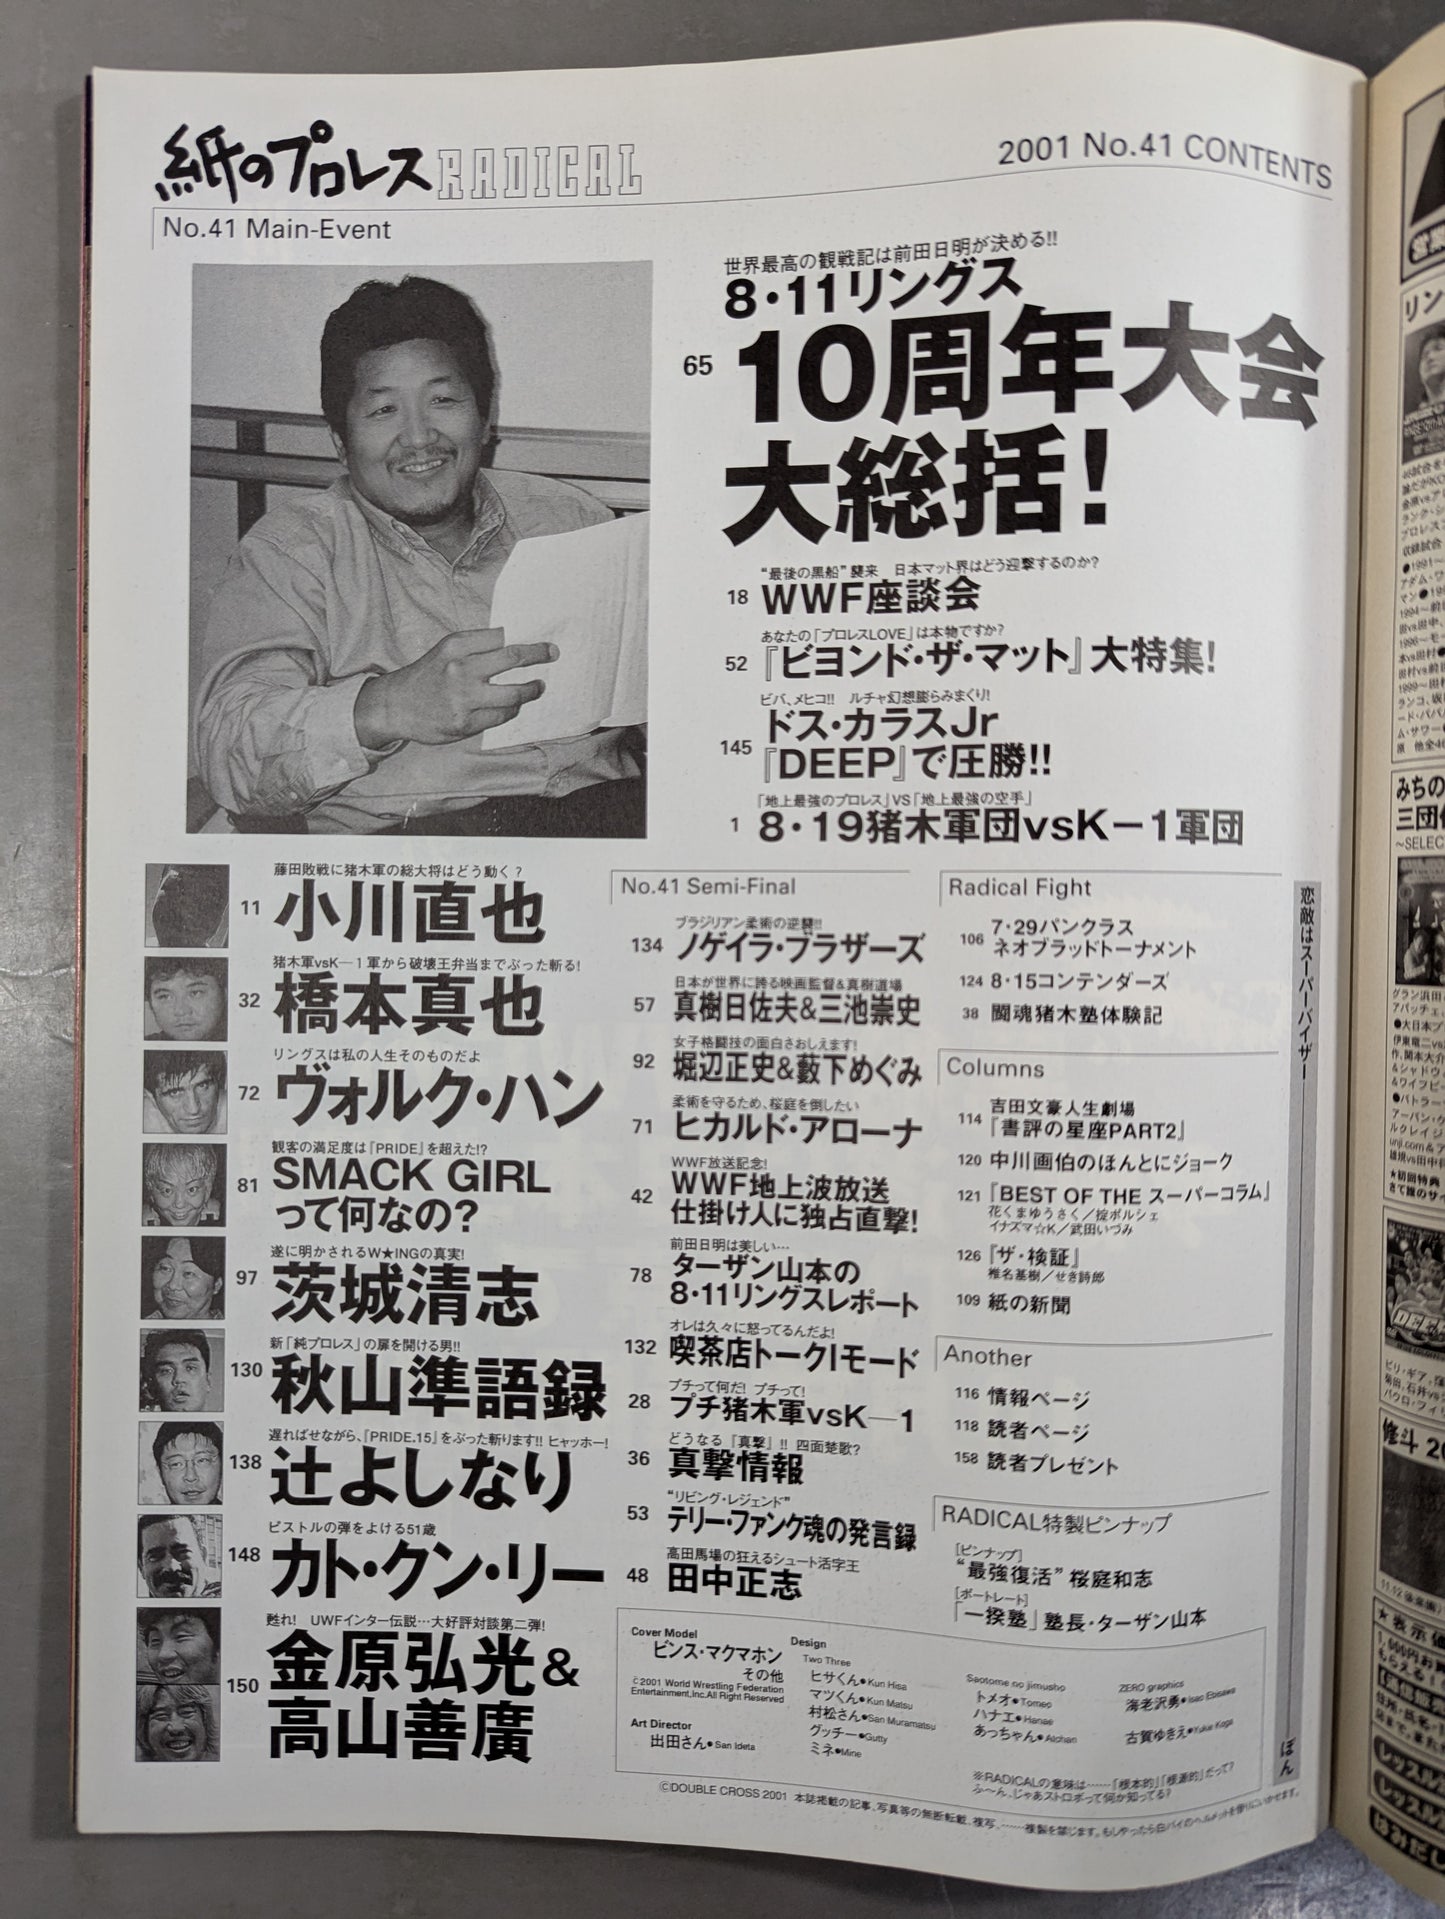 紙のプロレス RADICAL
2001 No.41 CONTENTS
No.41 Main-Event
世界最高の観戦記は前田日明が決める!!
8・11リングス
65 10周年大会
大総括!
“最後の黒船”襲来 日本マット界はどう迎撃するのか?
18 WWF座談会
あなたの「プロレスLOVE」は本物ですか?
52 『ビヨンド・ザ・マット』大特集!
ビバ、メヒコ!! ルチャ幻想膨らみまくり!
ドス・カラスJr
145 『DEEP』で圧勝!!
「地上最強のプロレス」VS「地上最強の空手」
1 8・19猪木軍団vsK－1軍団
藤田敗戦に猪木軍の総大将はどう動く?
11 小川直也
猪木軍vsK―1軍から破壊王弁当までぶった斬る!
32 橋本真也
リングスは私の人生そのものだよ
72 ヴォルク・ハン
観客の満足度は『PRIDE』を超えた!?
81 SMACK GIRL
って何なの?
遂に明かされるW★INGの真実!
97 茨城清志
新「純プロレス」の扉を開ける男!!
130 秋山準語録
遅ればせながら、『PRIDE.15』をぶった斬ります!! ヒャッホー!
138 辻よしなり
ピストルの弾をよける51歳
148 カト・クン・リー
甦れ! UWFインター伝説…大好評対談第二弾!
150 金原弘光&
高山善廣
No.41 Semi-Final
ブラジリアン柔術の逆襲!!
134 ノゲイラ・ブラザーズ
日本が世界に誇る映画監督&真樹道場
57 真樹日佐夫&三池崇史
女子格闘技の面白さおしえます!
92 堀辺正史&藪下めぐみ
柔術を守るため、桜庭を倒したい
71 ヒカルド・アローナ
WWF放送記念!
42 WWF地上波放送
仕掛け人に独占直撃!
前田日明は美しい…
78 ターザン山本の
8・11リングスレポート
オレは久々に怒ってるんだよ!
132 喫茶店トークIモード
プチって何だ! プチって!
28 プチ猪木軍vsK―1
どうなる『真撃』!! 四面楚歌?
36 真撃情報
“リビング・レジェンド”
53 テリー・ファンク魂の発言録
高田馬場の狂えるシュート活字王
48 田中正志
Radical Fight
7・29パンクラス
106 ネオブラッドトーナメント
124 8・15コンテンダーズ
38 闘魂猪木塾体験記
Columns
吉田文豪人生劇場
114 『書評の星座PART2』
120 中川画伯のほんとにジョーク
121 『BEST OF THE スーパーコラム』
花くまゆうさく／掟ポルシェ
イナズマ☆K／武田いづみ
126 『ザ・検証』
椎名基樹／せき詩郎
109 紙の新聞
Another
116 情報ページ
118 読者ページ
158 読者プレゼント
RADICAL特製ピンナップ
[ピンナップ]
“最強復活”桜庭和志
[ポートレート]
「一揆塾」塾長・ターザン山本
恋敵はスーパーバイザー
ぽん
Cover Model
ビンス・マクマホン
その他
©2001 World Wrestling Federation
Entertainment,Inc.All Right Reserved
Art Director
出田さん●San Ideta
Design
Two Three
ヒサくん●Kun Hisa
マツくん●Kun Matsu
村松さん●San Muramatsu
グッチー●Gutty
ミネ●Mine
Saotome no jimusho
トメオ●Tomeo
ハナエ●Hanae
あっちゃん●Atchan
ZERO graphics
海老沢勇●Isao Ebisawa
古賀ゆきえ●Yukie Koga
※RADICALの意味は……「根本的」「根源的」だって?
ふ～ん、じゃあストロボって何か知ってる?
©DOUBLE CROSS 2001 本誌掲載の記事、写真等の無断転載、複写、……複製を禁じます。もしやったら白バイのヘルメットを借りにいかせます。
リン
みちの
三団体
～SELEC
修斗 20